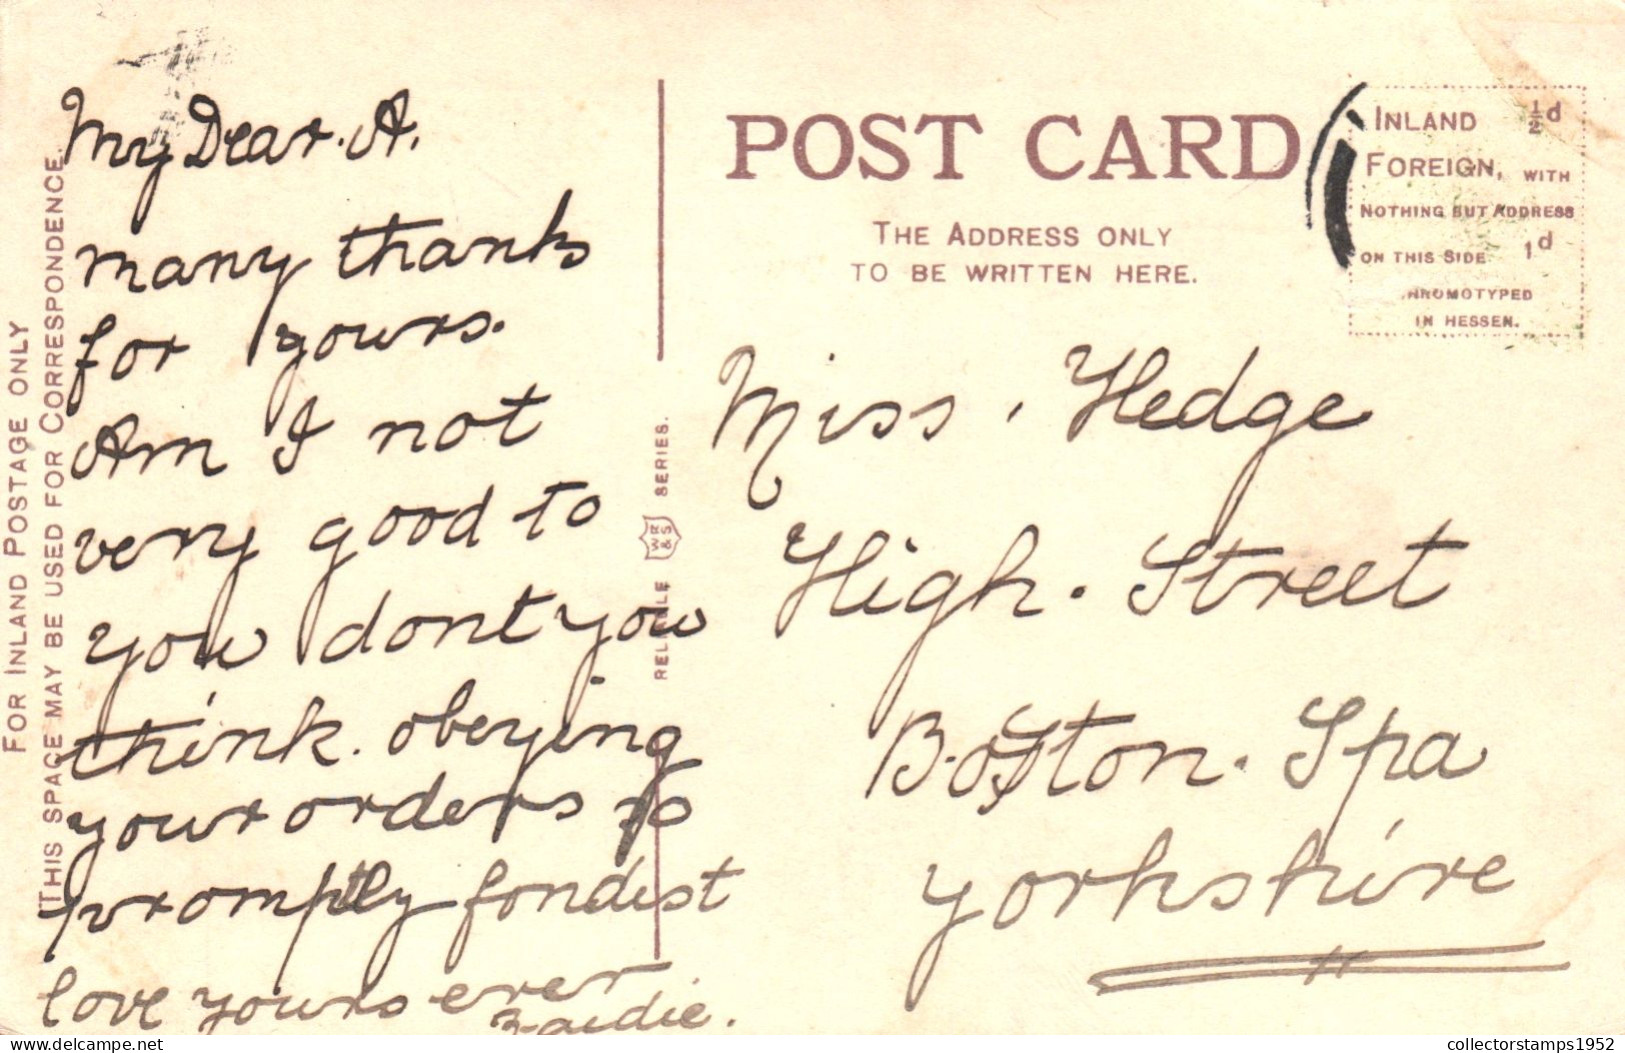 My Dear. A.
many thanks
for yours.
Am I not
very good to
you dont you
think. obeying
your orders so
promptly fondest
love yours ever
POST CARD
THE ADDRESS ONLY
TO BE WRITTEN HERE.
INLAND ½d
FOREIGN, WITH
NOTHING BUT ADDRESS
ON THIS SIDE 1d
HROMOTYPED
IN HESSEN.
Miss. Hedge
High. Street
Boston. Spa
Yorkshire
FOR INLAND POSTAGE ONLY
THIS SPACE MAY BE USED FOR CORRESPONDENCE
WR
&S
SERIES.
delcampe.net
collectorstamps1952